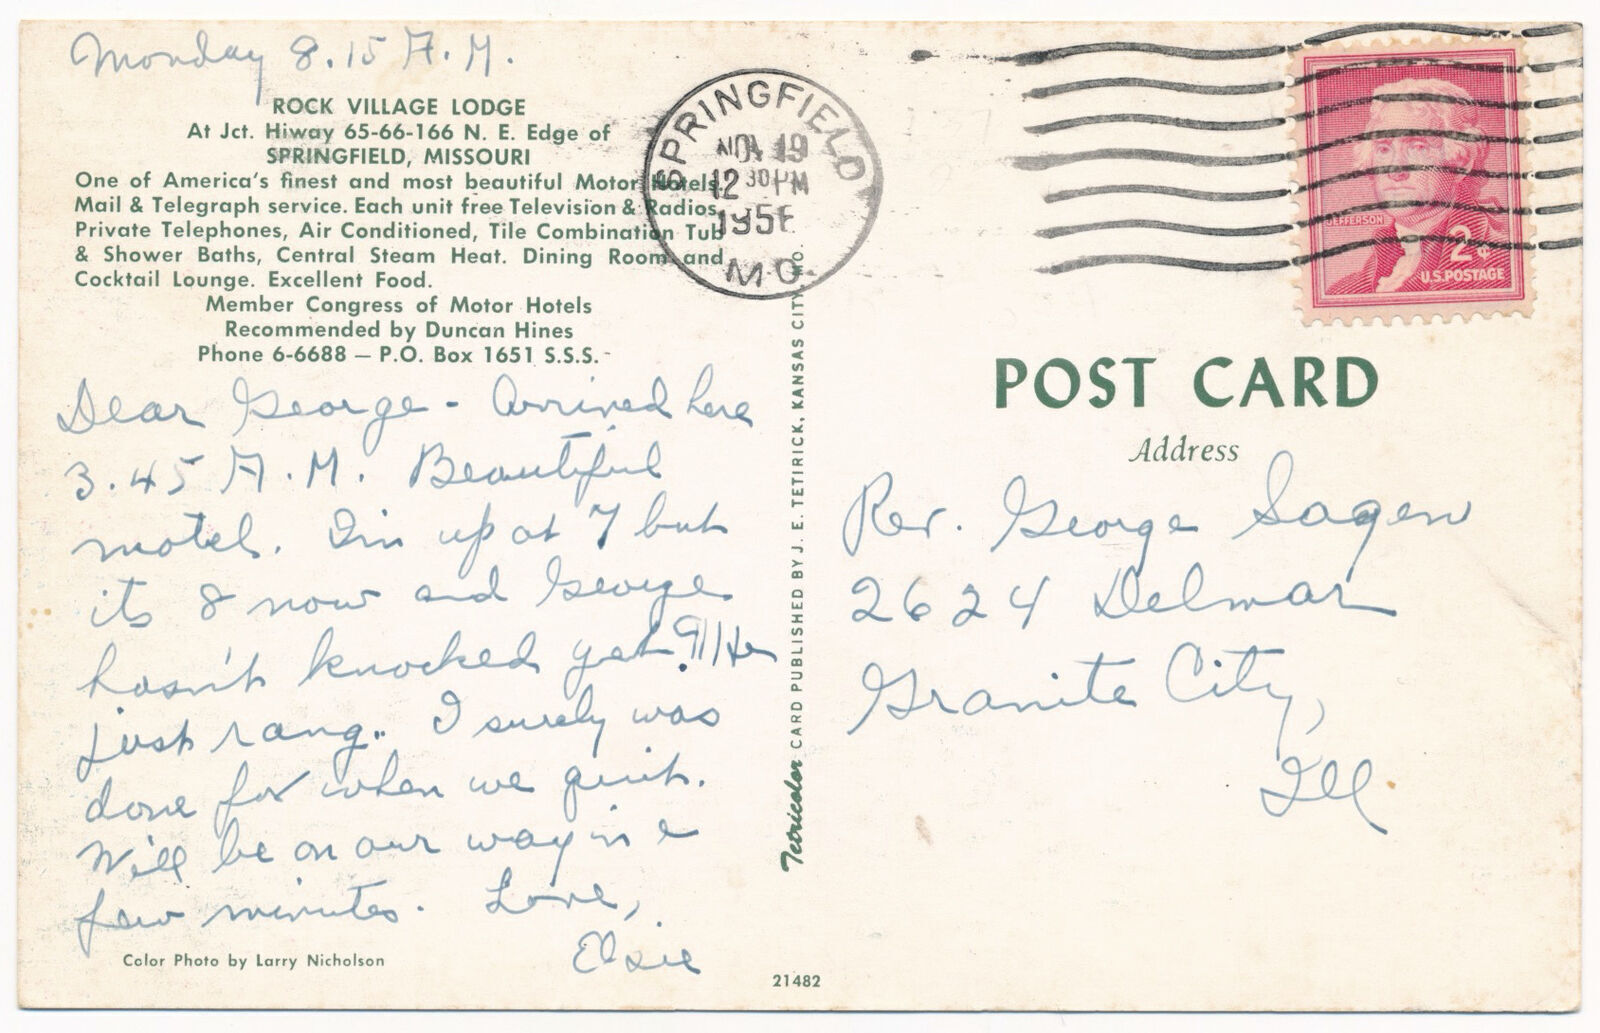 Monday 8.15 A.M.
ROCK VILLAGE LODGE
At Jct. Hiway 65-66-166 N. E. Edge of
SPRINGFIELD, MISSOURI
One of America's finest and most beautiful Motor Hotels.
Mail & Telegraph service. Each unit free Television & Radios,
Private Telephones, Air Conditioned, Tile Combination Tub
& Shower Baths, Central Steam Heat. Dining Room and
Cocktail Lounge. Excellent Food.
Member Congress of Motor Hotels
Recommended by Duncan Hines
Phone 6-6688 — P.O. Box 1651 S.S.S.
Dear George - Arrived here
3.45 A.M. Beautiful
motel. I'm up at 7 but
its 8 now and George
hasn't knocked yet. He
just rang.. I surely was
done for when we quit.
Will be on our way in a
few minutes. Love,
Elsie
Color Photo by Larry Nicholson
21482
Tetricolor CARD PUBLISHED BY J. E. TETIRICK, KANSAS CITY, MO.
SPRINGFIELD
NOV 19
12 30 PM
195
MO.
JEFFERSON
2¢
U.S. POSTAGE
POST CARD
Address
Rev. George Sagen
2624 Delmar
Granite City,
Ill.